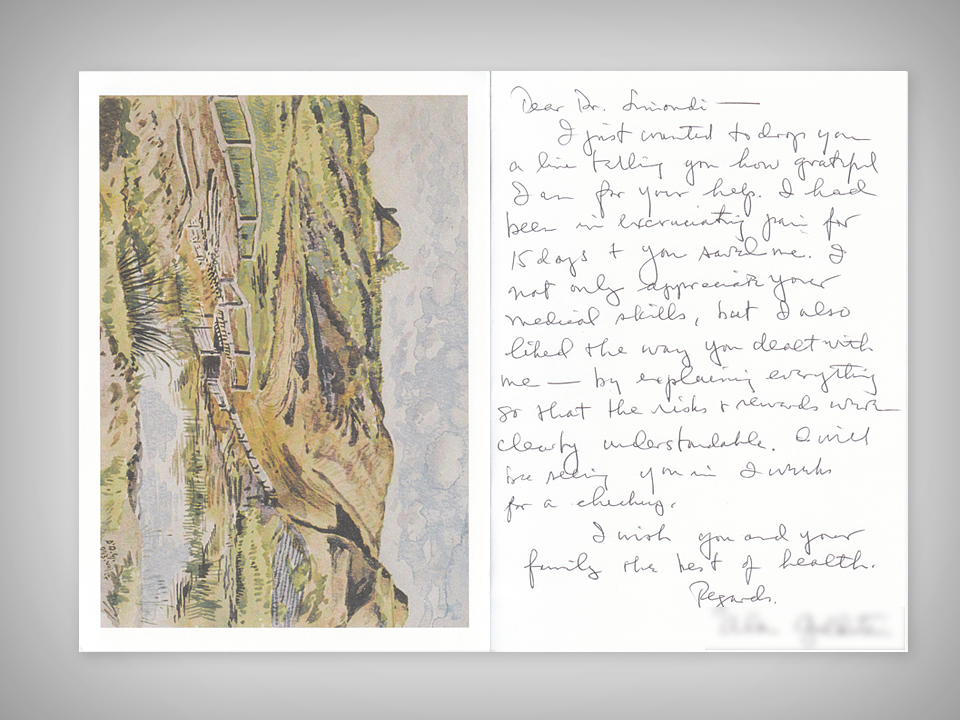 Dear Dr. Simondi —
I just wanted to drop you
a line telling you how grateful
I am for your help. I had
been in excruciating pain for
15 days + you saved me. I
not only appreciate your
medical skills, but I also
liked the way you dealt with
me — by explaining everything
so that the risks + rewards were
clearly understandable. I will
be seeing you in 2 weeks
for a checkup.
I wish you and your
family the best of health.
Regards,